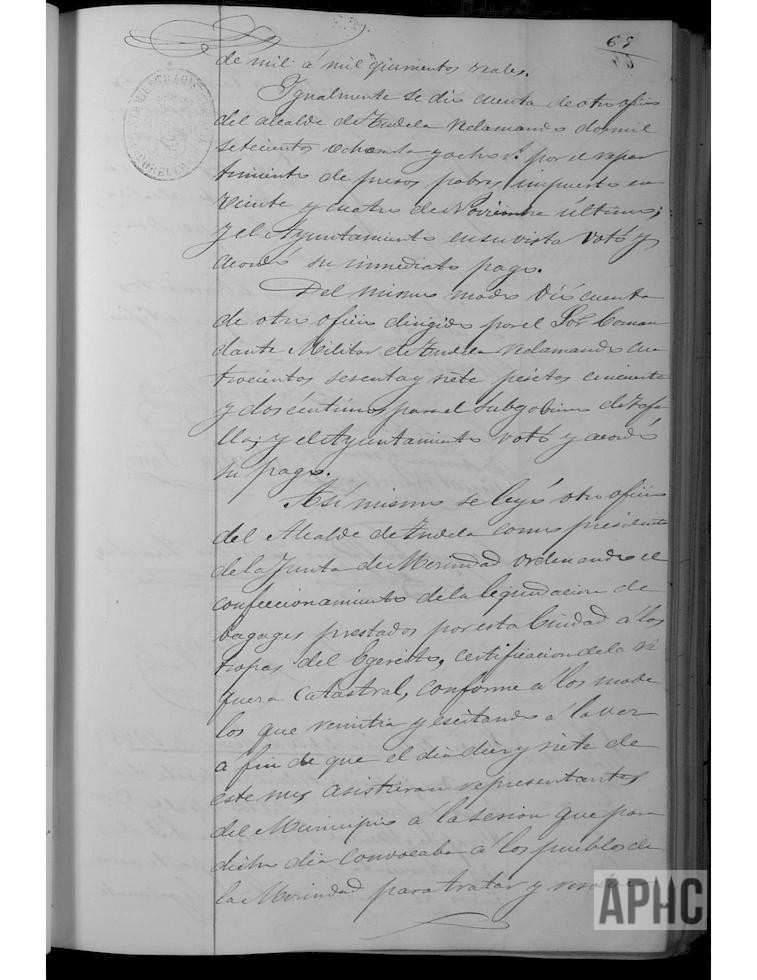 65
de mil á mil quinientos reales.
Igualmente se dió cuenta de otro oficio
del alcalde de Tudela reclamando dos mil
setecientos ochenta y ocho r.s por el repar
timiento de presos pobres impuesto en
Veinte y cuatro de Noviembre último;
y el Ayuntamiento en su vista votó y
acordó su inmediato pago.
Del mismo modo dió cuenta
de otro oficio dirigido por el Sor Coman
dante Militar de Tudela reclamando cua
trocientos sesenta y siete pesetas cincuenta
y dos céntimos para el subgobierno de Tafa
lla; y el Ayuntamiento votó y acordó
su pago.
Asi mismo se leyó otro oficio
del Alcalde de Tudela como presidente
de la Junta de Merindad ordenando el
confeccionamiento de la liquidacion de
bagages prestados por esta Ciudad á las
tropas del Egercito, certificacion de la ri
queza catastral, conforme á los mode
los que remitia y escitando á la vez
á fin de que el dia diez y siete de
este mes asistieran representantes
del Municipio á la sesion que para
dicho dia convocaba á los pueblos de
la Merindad para tratar y resolver
APHC